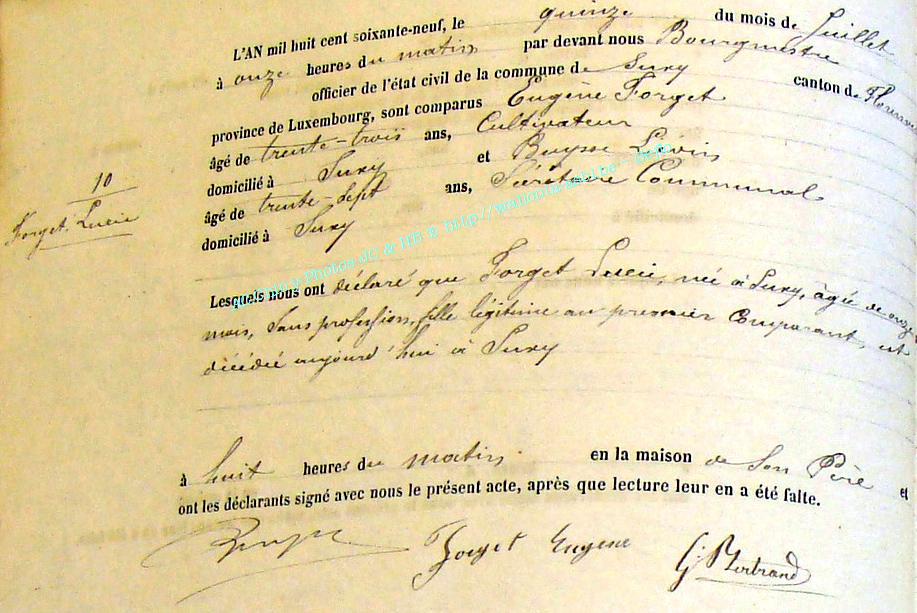 L'AN mil huit cent soixante-neuf, le quinze du mois de Juillet
à onze heures du matin par devant nous Bourgmestre
officier de l'état civil de la commune de Suxy canton de
province de Luxembourg, sont comparus Eugène Forget
âgé de trente-trois ans, Cultivateur
domicilié à Suxy et
âgé de trente-sept ans, Sécrétaire Communal
domicilié à Suxy
10
Forget, Lucie
Photos JC & HB © http://
Lesquels nous ont déclaré que Forget Lucie, née à Suxy, âgée de onze
mois, sans profession, fille légitime au premier Comparant, est
décédée aujourd'hui à Suxy
à huit heures du matin en la maison de son Père et
ont les déclarants signé avec nous le présent acte, après que lecture leur en a été faite.
Forget Eugène
G. Bertrand